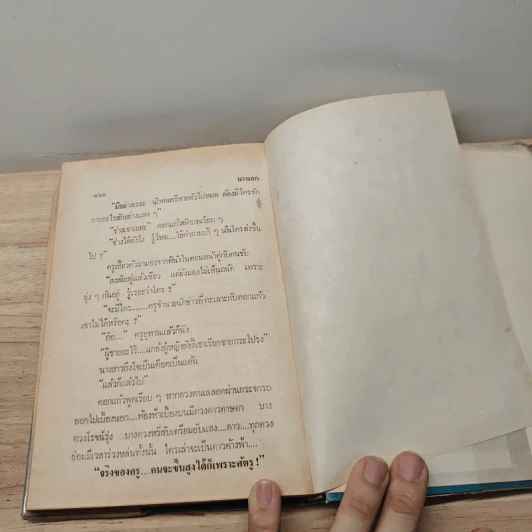 นานอก
"มีอย่างเรอะ นักดนตรีหายหัวไปหมด ต้องมีใครชัก
กายอะไรสักอย่างแหง ๆ"
"ช่างเขาเถอะ" ดอกแก้วตัดบทเรียบ ๆ
"ช่างได้ยังไง รู้ไหม....
ไป ?"
ครูเอี้ยวตัวมามองจากที่นั่งในตอนหน้าคู่กับคนขับ
"สงสัยอยู่แล้วเชียว แต่ยังมองไม่เห็นถนัด เพราะ
ยุ่ง ๆ กันอยู่ รู้เรอะว่าใคร ?"
"จะมีใคร........ครูจำนายนักข่าวที่ทะเลาะกับดอกแก้ว
เขาไม่ได้หรือคะ ?"
"อ้อ...." ครูอุทานแล้วก็นิ่ง
"ผู้ชายอะไร้....แกล้งผู้หญิงยังงี้เขาเรียกชายกระโปรง"
นางสาวถึงใจเป็นเดือดเป็นแค้น
"แล้วก็แล้วไป"
ดอกแก้วพูดเรียบ ๆ หากดวงตาแลลอดผ่านกระจกรถ
ออกไปเบื้องนอก....ท้องฟ้าเบื้องบนมีดวงดาวดาษดา บาง
ดวงโรจน์รุ่ง บางดวงหรี่ลับเตรียมอับแสง....ดาว....ทุกดวง
ย่อมมีเวลาร่วงหล่นทั้งนั้น ใครเล่าจะเป็นดาวค้างฟ้า....
"จริงของครู....คนจะขึ้นสูงได้ก็เพราะศัตรู !"